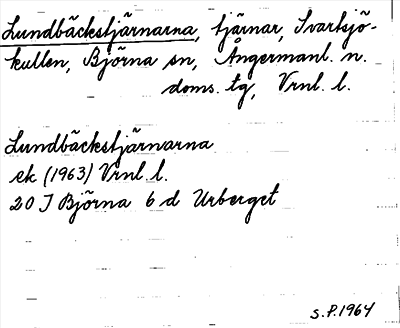 Lundbäckstjärnarna, tjärnar, Svartsjö-
kullen, Björna sn, Ångermanl. n.
doms. tg, Vrnl. l.
Lundbäckstjärnarna
ek (1963) Vrnl. l.
20 J Björna 6 d Urberget
S.P. 1964